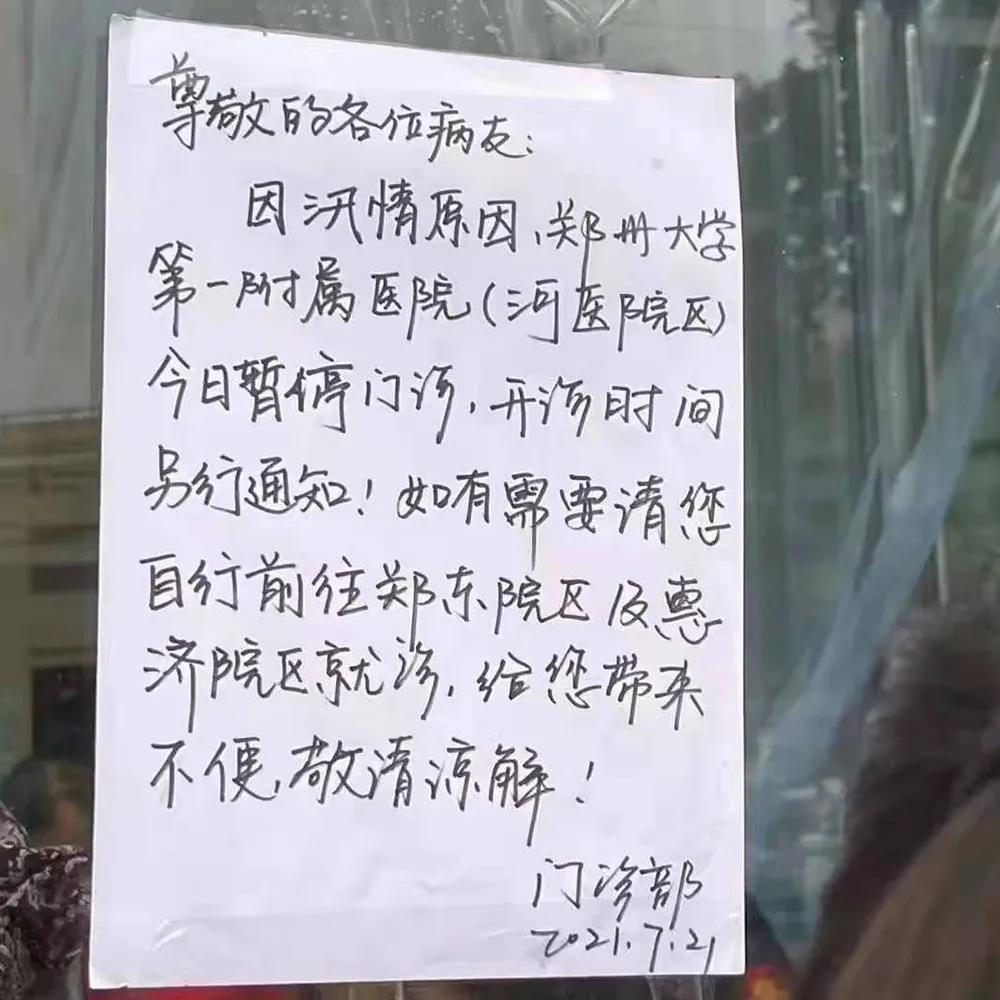 尊敬的各位病友：
因汛情原因、郑州大学
第一附属医院(河医院区)
今日暂停门诊，开诊时间
另行通知！如有需要请您
自行前往郑东院区及惠
济院区就诊，给您带来
不便，敬请谅解！
门诊部
2021.7.21